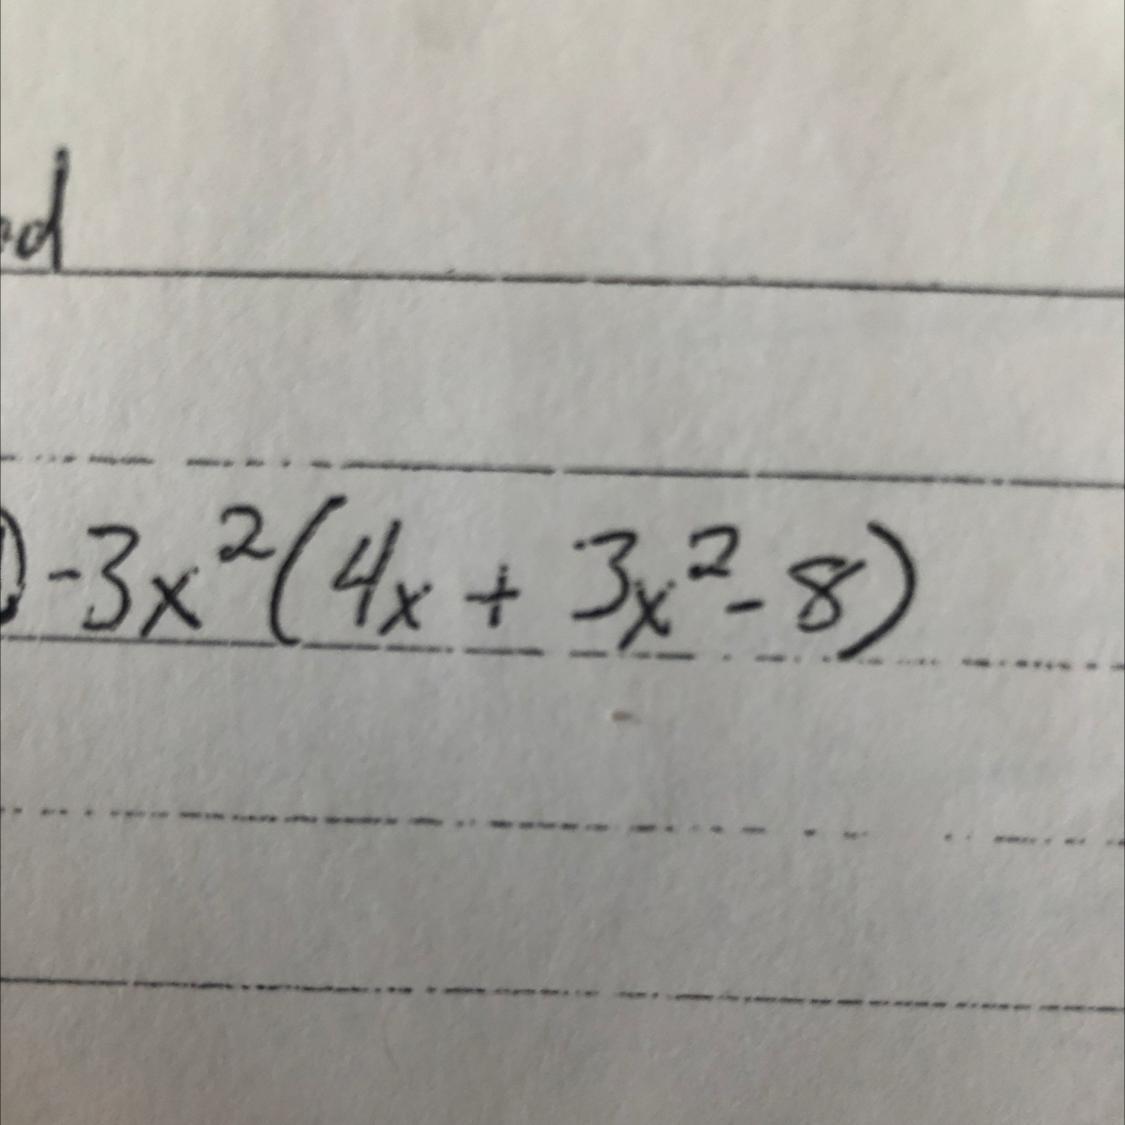 -3x²(4x + 3x²-8)